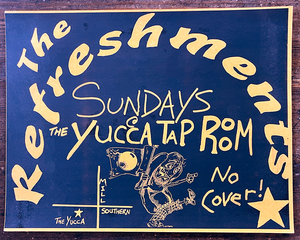 The Refreshments
SUNDAYS
THE YUCCA TAP ROOM
No
Cover!
MILL
SOUTHERN
The YUCCA